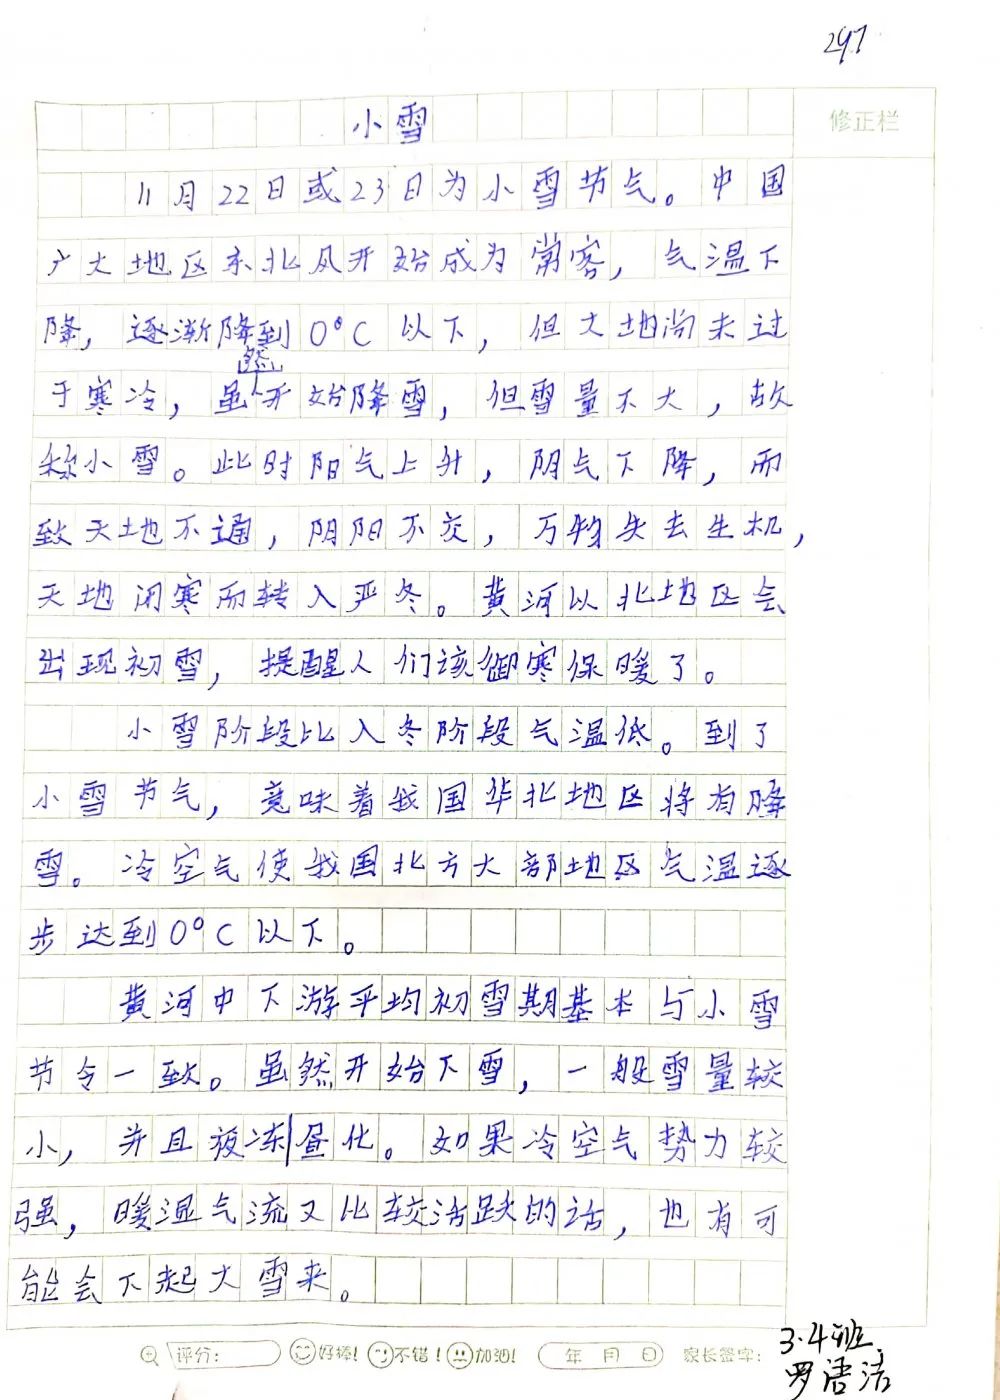 297
小雪
修正栏
11月22日或23日为小雪节气。中国
广大地区东北风开始成为常客，气温下
降，逐渐降到0°C以下，但大地尚未过
于寒冷，虽然开始降雪，但雪量不大，故
称小雪。此时阳气上升，阴气下降，而
致天地不通，阴阳不交，万物失去生机，
天地闭寒而转入严冬。黄河以北地区会
出现初雪，提醒人们该御寒保暖了。
小雪阶段比入冬阶段气温低。到了
小雪节气，意味着我国华北地区将有降
雪。冷空气使我国北方大部地区气温逐
步达到0°C以下。
黄河中下游平均初雪期基本与小雪
节令一致。虽然开始下雪，一般雪量较
小，并且夜冻昼化。如果冷空气势力较
强，暖湿气流又比较活跃的话，也有可
能会下起大雪来。
评分： 好棒！ 不错！ 加油！ 年 月 日 家长签字：
3.4班
罗语洁